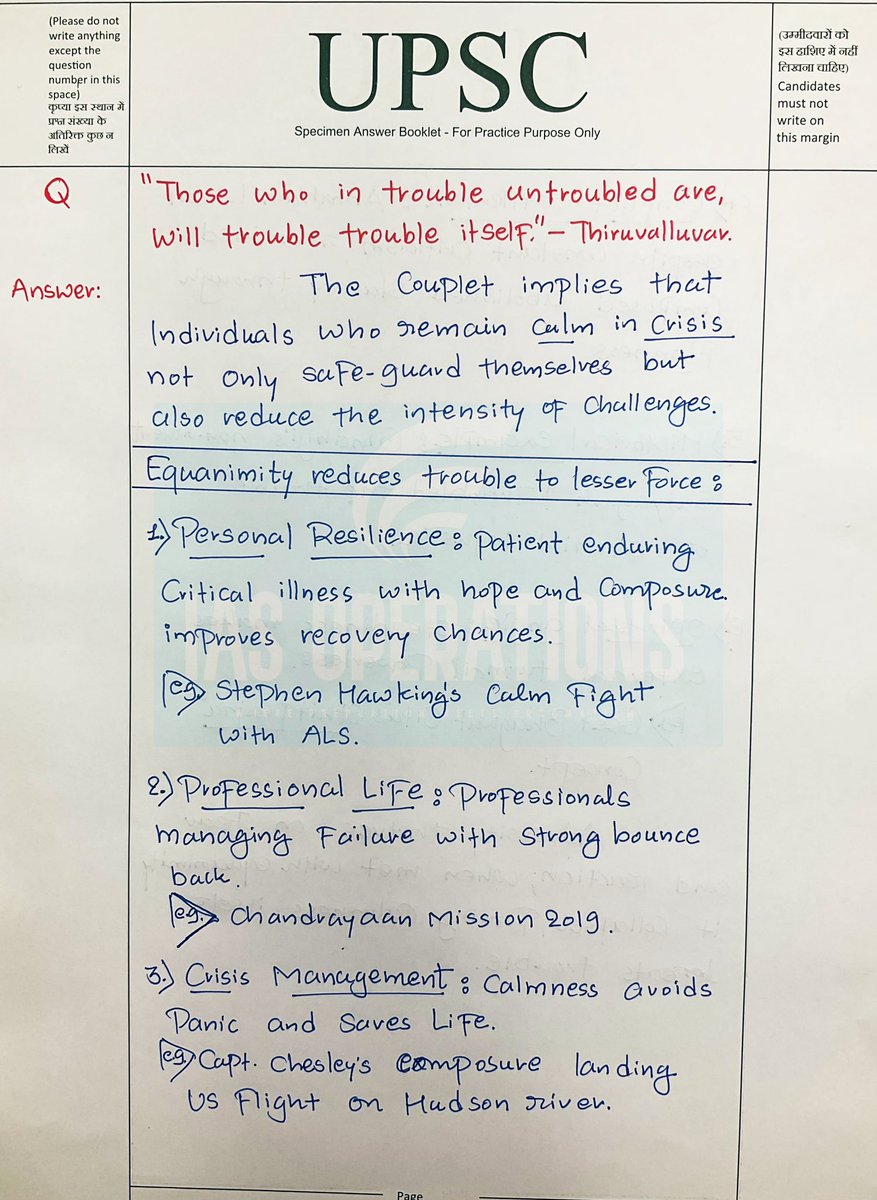 (Please do not
write anything
except the
question
number in this
space)
कृप्या इस स्थान में
प्रश्न संख्या के
अतिरिक्त कुछ न
लिखें
UPSC
Specimen Answer Booklet - For Practice Purpose Only
(उम्मीदवारों को
इस हाशिए में नहीं
लिखना चाहिए)
Candidates
must not
write on
this margin
Q
"Those who in trouble untroubled are,
will trouble trouble itself."- Thiruvalluvar.
Answer:
The Couplet implies that
Individuals who remain calm in Crisis
not only safe-guard themselves but
also reduce the intensity of challenges.
Equanimity reduces trouble to lesser Force:
1.) Personal Resilience: Patient enduring
Critical illness with hope and Composure
improves recovery chances.
eg. Stephen Hawking's Calm Fight
with ALS.
2.) Professional Life: Professionals
managing Failure with Strong bounce
back.
eg. Chandrayaan Mission 2019.
3.) Crisis Management: Calmness avoids
Panic and Saves Life.
eg. Capt. Chesley's composure landing
US Flight on Hudson river.
IAS OPERATIONS
Page